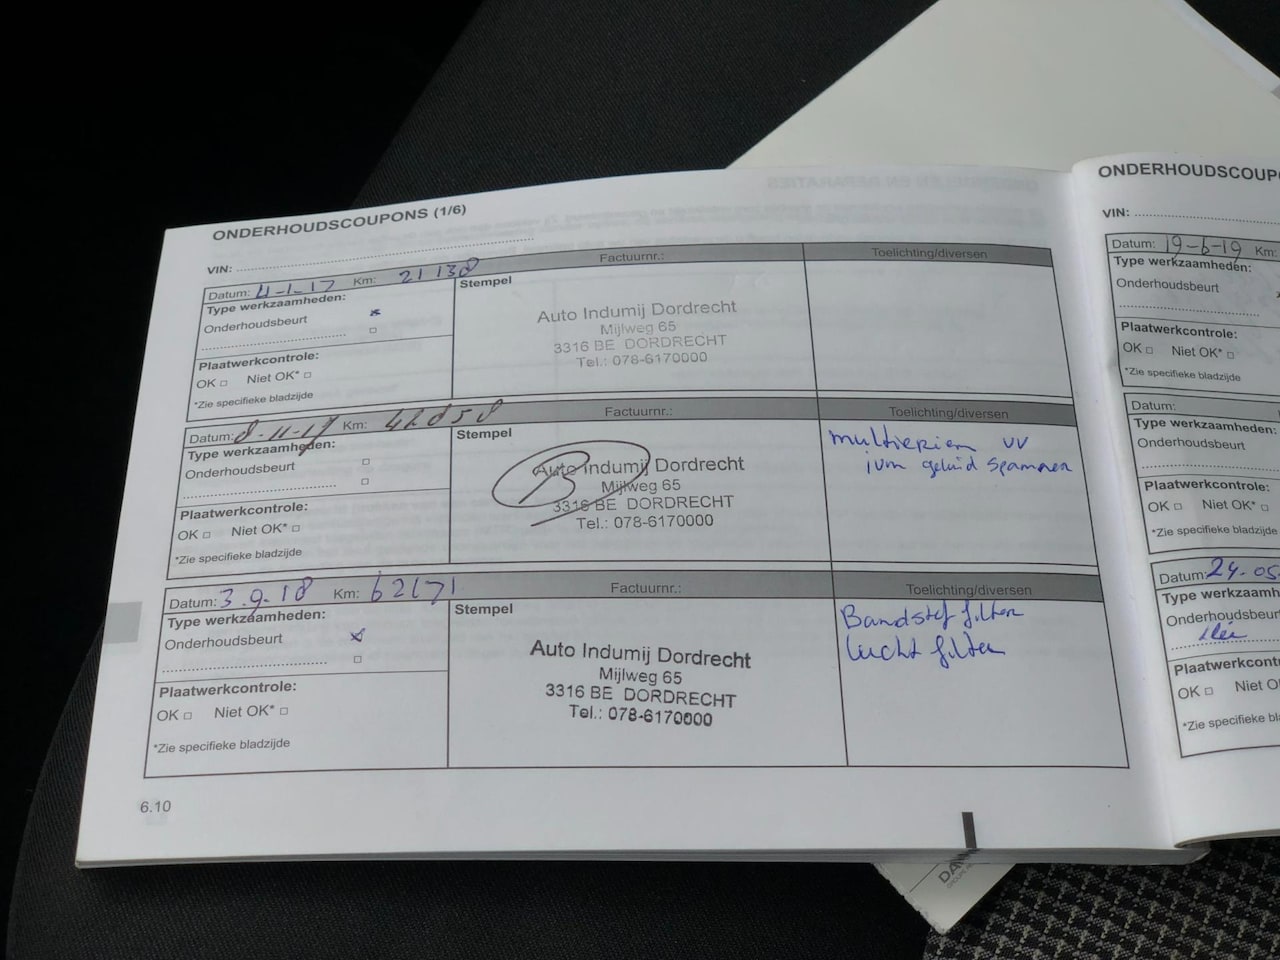 ONDERHOUDSCOUPONS (1/6)
VIN:
Datum: 4-1-17 Km: 21138
Factuurnr.:
Toelichting/diversen
Type werkzaamheden:
Onderhoudsbeurt
Plaatwerkcontrole:
OK Niet OK*
*Zie specifieke bladzijde
Stempel
Auto Indumij Dordrecht
Mijlweg 65
3316 BE DORDRECHT
Tel.: 078-6170000
Datum: 8-11-17 Km:
Factuurnr.:
Toelichting/diversen
Type werkzaamheden:
Onderhoudsbeurt
Plaatwerkcontrole:
OK Niet OK*
*Zie specifieke bladzijde
Stempel
Auto Indumij Dordrecht
Mijlweg 65
3316 BE DORDRECHT
Tel.: 078-6170000
multieriem vv
ivm geluid spannen
Datum: 3.9.18 Km: 62171
Factuurnr.:
Toelichting/diversen
Type werkzaamheden:
Onderhoudsbeurt
Plaatwerkcontrole:
OK Niet OK*
*Zie specifieke bladzijde
Stempel
Auto Indumij Dordrecht
Mijlweg 65
3316 BE DORDRECHT
Tel.: 078-6170000
filter
lucht filter
6.10
ONDERHOUDSCOUP
VIN:
Datum: 19-6-19 Km:
Type werkzaamheden:
Onderhoudsbeurt
Plaatwerkcontrole:
OK Niet OK*
*Zie specifieke bladzijde
Datum:
Type werkzaamheden:
Onderhoudsbeurt
Plaatwerkcontrole:
OK Niet OK*
*Zie specifieke bladzijde
Datum: 24-05
Type werkzaamh
Onderhoudsbeur
Plaatwerkcont
OK Niet O
*Zie specifieke bl